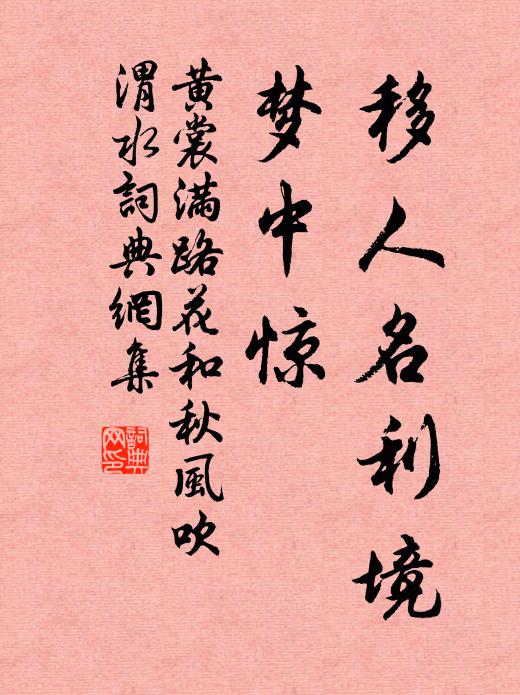 移人名利境
梦中惊
黄裳满路花和秋風吹
渭水詞典網集
詞典
网印